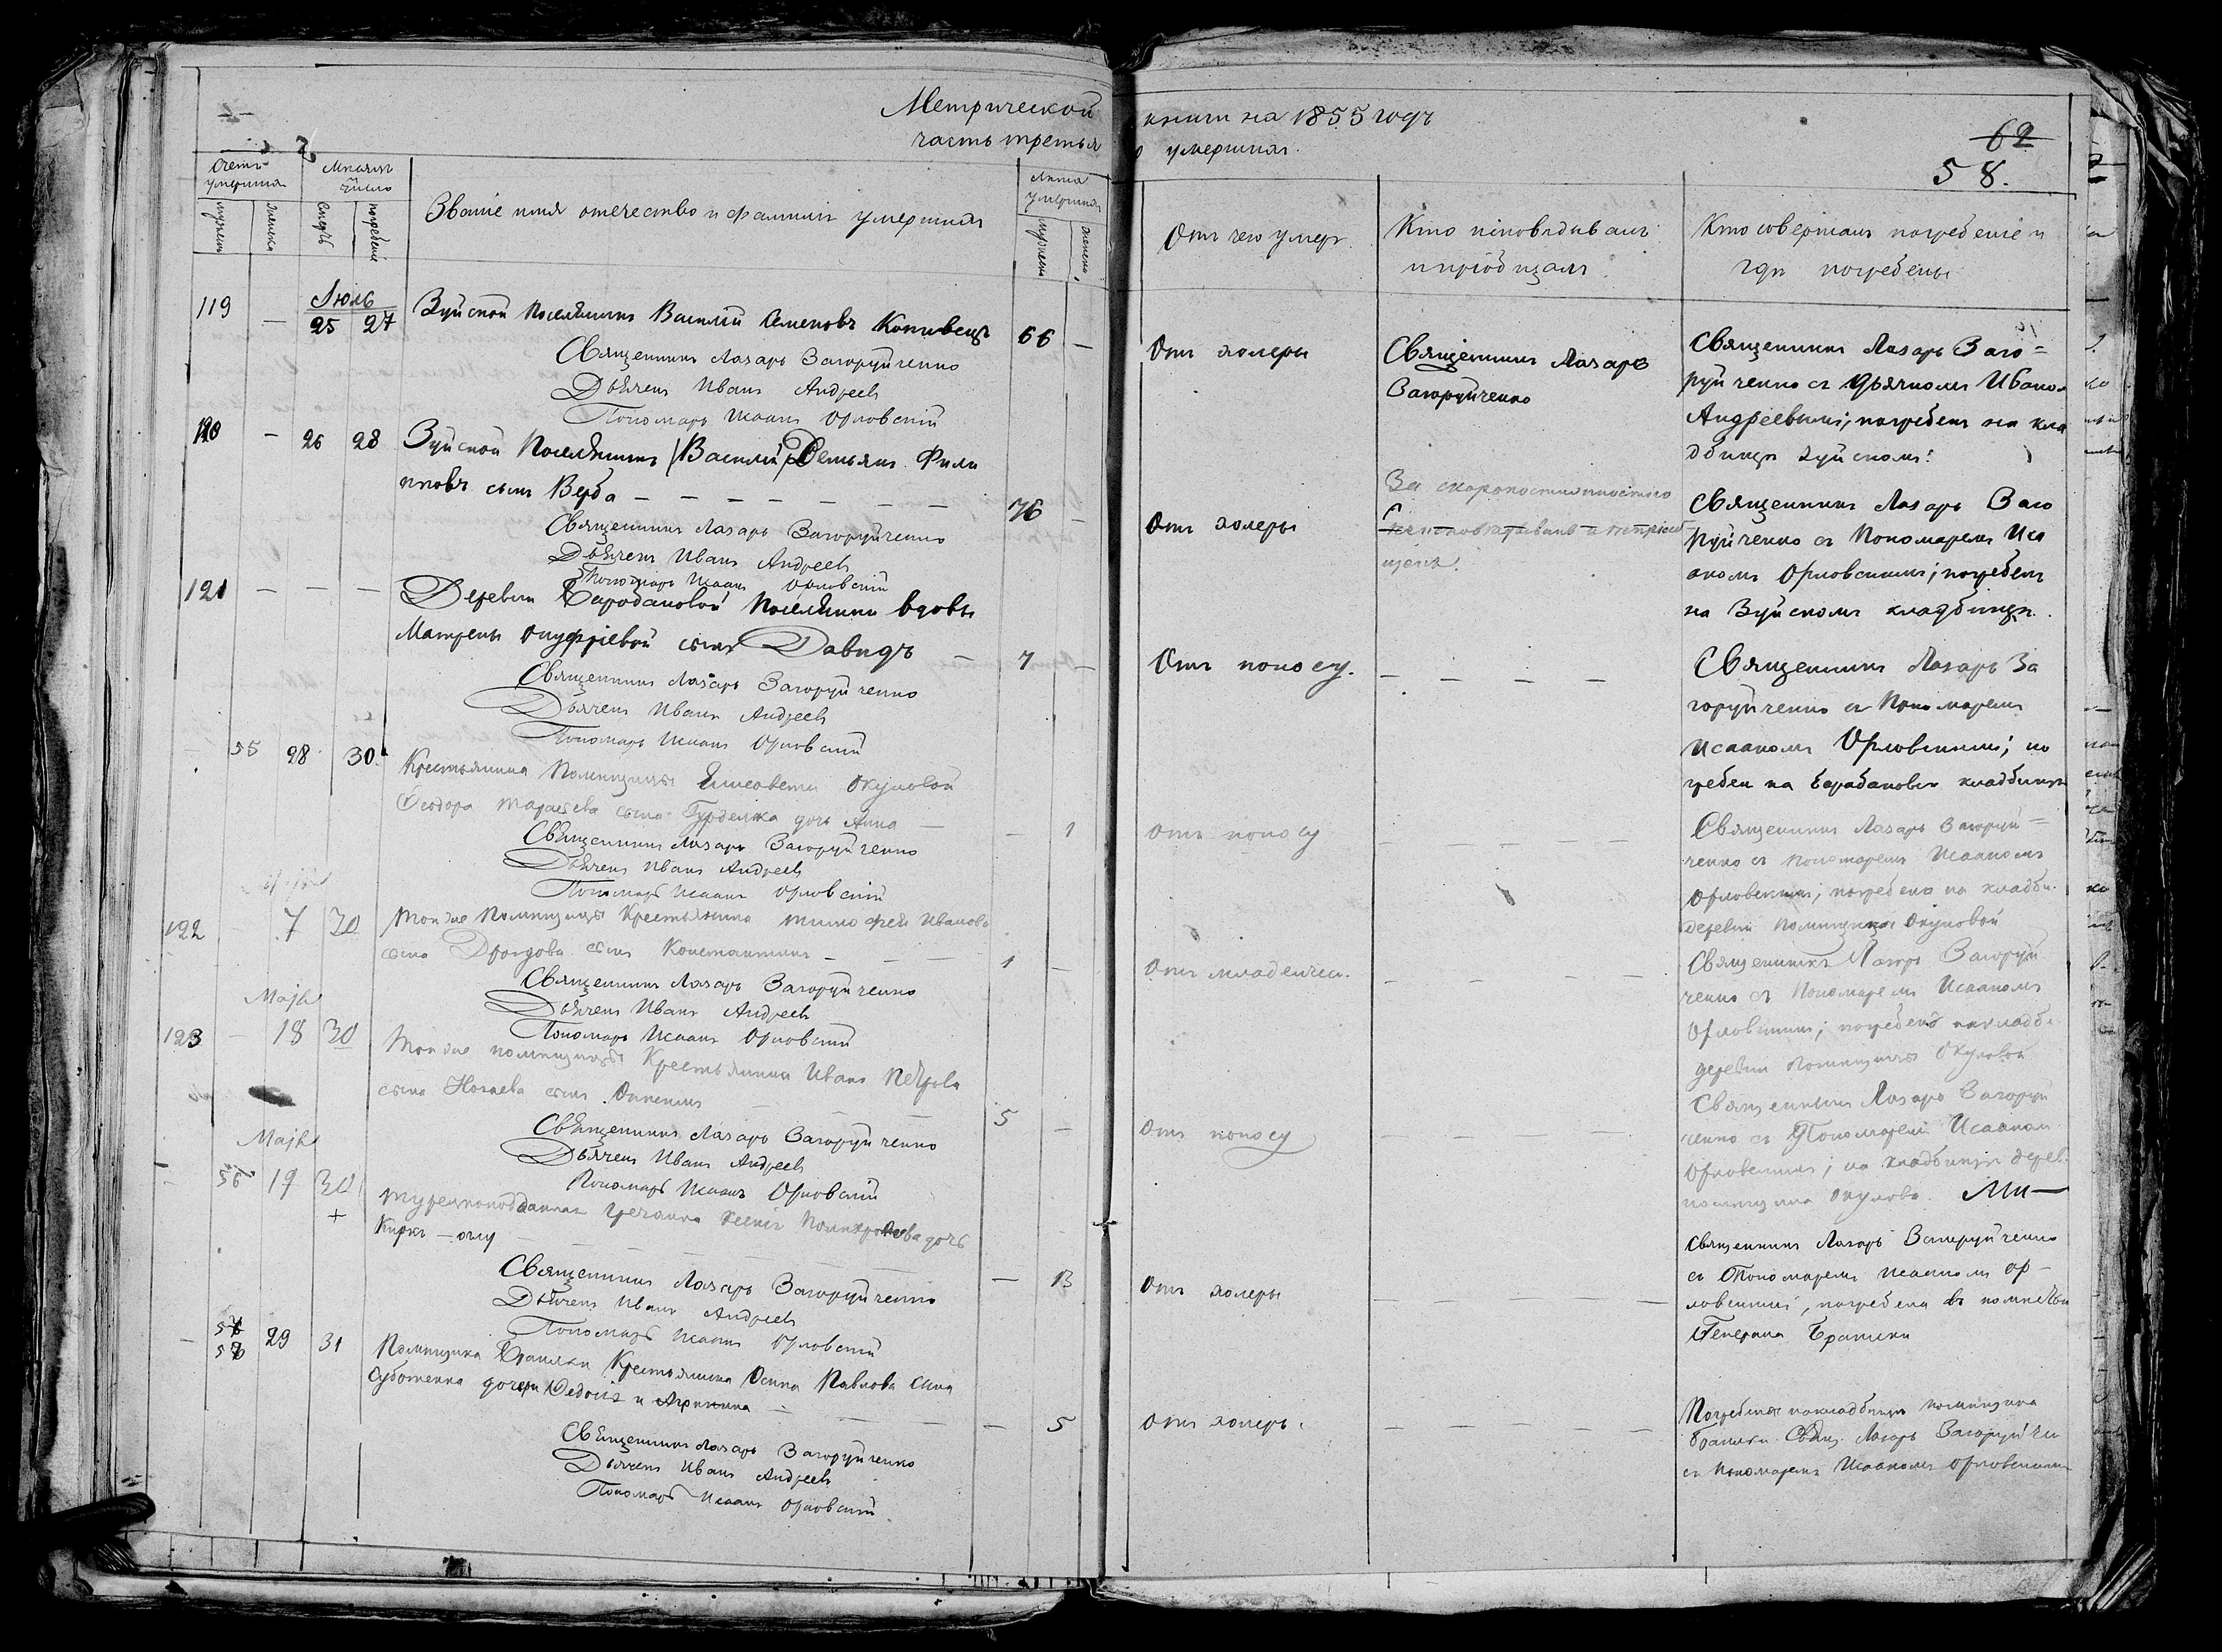 Метрической книги на 1855 годъ
часть третья о умершихъ.
62
58.
Счетъ умершихъ
Мѣсяцъ число
Званіе имя отечество и фамилія умершихъ
Лѣта умершихъ
Отъ чего умеръ.
Кто исповѣдывалъ и пріобщалъ.
Кто совершалъ погребеніе и гдѣ погребены
мужеска
женска
смерть
погребеніе
мужеска
женска
119 — Іюль 25 27 Зуйской Поселянинъ Василій Семеновъ 66 —
Священникъ Лазарь Загоруйченко
Дьячекъ Иванъ Андреевъ
Пономарь Исаакъ Орловскій
Отъ холеры
Священникъ Лазарь
Загоруйченко
Священникъ Лазарь Заго=
руйченко съ дьячкомъ Ивано
Андреевымъ; погребенъ на кла
дбищѣ Зуйскомъ.
120 — 26 28 Зуйской Поселянинъ (Василій) Демьянъ Фили
пповъ сынъ Верба — — — — — — — 76 —
Священникъ Лазарь Загоруйченко
Дьячекъ Иванъ Андреевъ
Пономарь Исаакъ Орловскій
Отъ холеры
За скоропостижностію
Священникъ Лазарь Заго
руйченко съ Пономаремъ Иса
акомъ Орловскимъ; погребенъ
на Зуйскомъ кладбищѣ.
121 — — — Деревни Барабановой Поселянки вдовы
Матрены Онуфріевой сынъ Давидъ — 7 —
Священникъ Лазарь Загоруйченко
Дьячекъ Иванъ Андреевъ
Пономарь Исаакъ Орловскій
Отъ поносу.
— — — —
Священникъ Лазарь За
горуйченко съ Пономаремъ
Исаакомъ Орловскимъ; по
гребен на Барабановск кладбищѣ
— 55 28 30 Крестьянина Помѣщицы Елисавети Окуловой
Феодора сына дочь Анна — — 1
Священникъ Лазарь Загоруйченко
Дьячекъ Иванъ Андреевъ
Пономарь Исаакъ Орловскій
отъ поносу
— — — — —
Священникъ Лазарь Загоруй=
ченко съ Пономаремъ Исаакомъ
Орловскимъ; погребена на кладби.
деревни помѣщицы Окуловой
122 — 7 30 Той же Помѣщицы Крестьянина Тимофея Иванова
сына Дроздова сынъ Константинъ — — — 1 —
Священникъ Лазарь Загоруйченко
Дьячекъ Иванъ Андреевъ
Пономарь Исаакъ Орловскій
Отъ младенчес.
— — — —
Священникъ Лазарь Загоруй
ченко съ Пономаремъ Исаакомъ
Орловскимъ; погребенъ на кладби.
деревни помѣщицы Окуловой
Майя
123 — 18 30 Той же помѣщицы Крестьянина Ивана Петрова
сына сынъ 5 —
Священникъ Лазарь Загоруйченко
Дьячекъ Иванъ Андреевъ
Пономарь Исаакъ Орловскій
Отъ поносу
— — —
Священникъ Лазарь Загоруй
ченко съ Пономаремъ Исаакомъ
Орловскимъ; на кладбищѣ дерев.
помѣщицы Окулово.
Майя
— 56 19 30 + Турецкоподданная гречанка дочь
— — — — — 13
Священникъ Лазарь Загоруйченко
Дьячекъ Иванъ Андреевъ
Пономарь Исаакъ Орловскій
Отъ холеры
— — — — —
Священникъ Лазарь Загоруйченко
съ Пономаремъ Исаакомъ Ор—
ловскимъ, погребена въ
Генерала
— 57 58 29 31 Помѣщика Крестьянина Осипа Павлова сына
дочери Федосія и — — — — 5
Священникъ Лазарь Загоруйченко
Дьячекъ Иванъ Андреевъ
Пономарь Исаакъ Орловскій
Отъ холеры.
— — — —
Погребена на кладбищѣ помѣщика
Свящ. Лазарь Загоруйчен
съ Пономаремъ Исаакомъ Орловскимъ